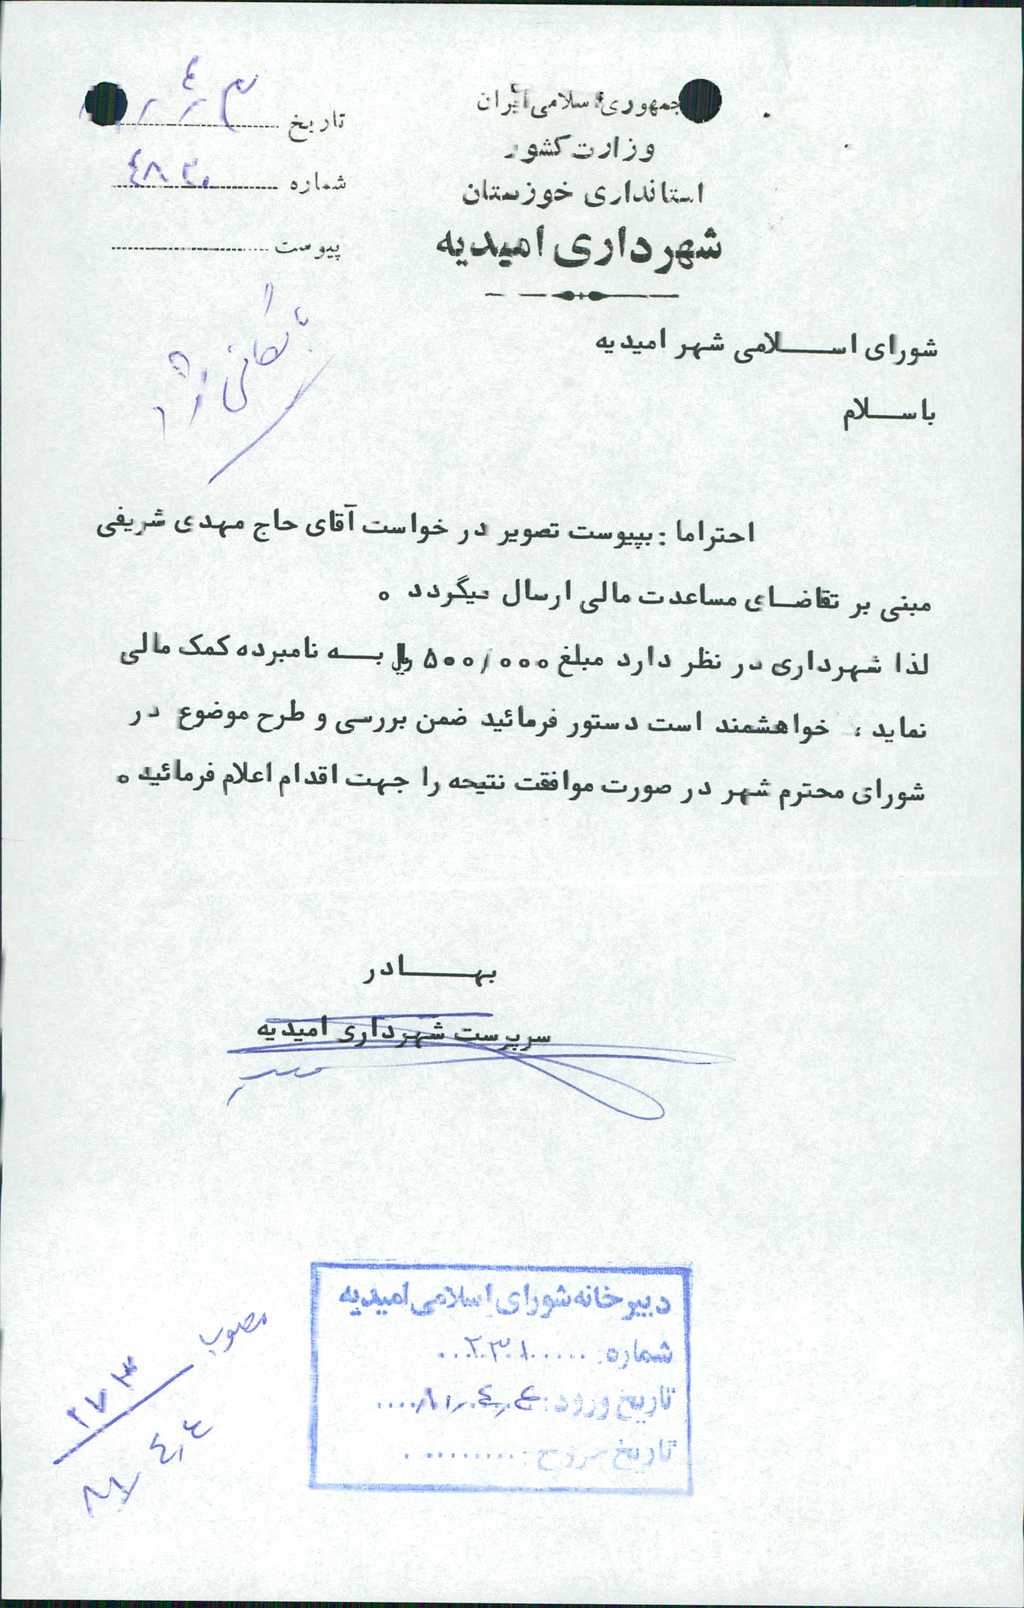 جمهوری اسلامی ایران
وزارت کشور
استانداری خوزستان
شهرداری امیدیه
تاریخ
شماره ۴۸۳۰
پیوست
شورای اسـلامی شهر امیدیه
باسـلام
احتراما : بپیوست تصویر در خواست آقای حاج مهدی شریفی
مبنی بر تقاضـای مساعدت مالی ارسال میگردد .
لذا شهرداری در نظر دارد مبلغ ۵۰۰/۰۰۰ ریال بـه نامبرده کمک مالی
نماید ، خواهشمند است دستور فرمائید ضمن بررسی و طرح موضوع در
شورای محترم شهر در صورت موافقت نتیجه را جهت اقدام اعلام فرمائید .
بهـادر
سرپرست شهرداری امیدیه
دبیرخانه شورای اسلامی امیدیه
شماره: ۲۳۱۰
تاریخ ورود: ۸۱/۴/۴
تاریخ خروج:
مصوب
۲۷۳
۸۱/۴/۴